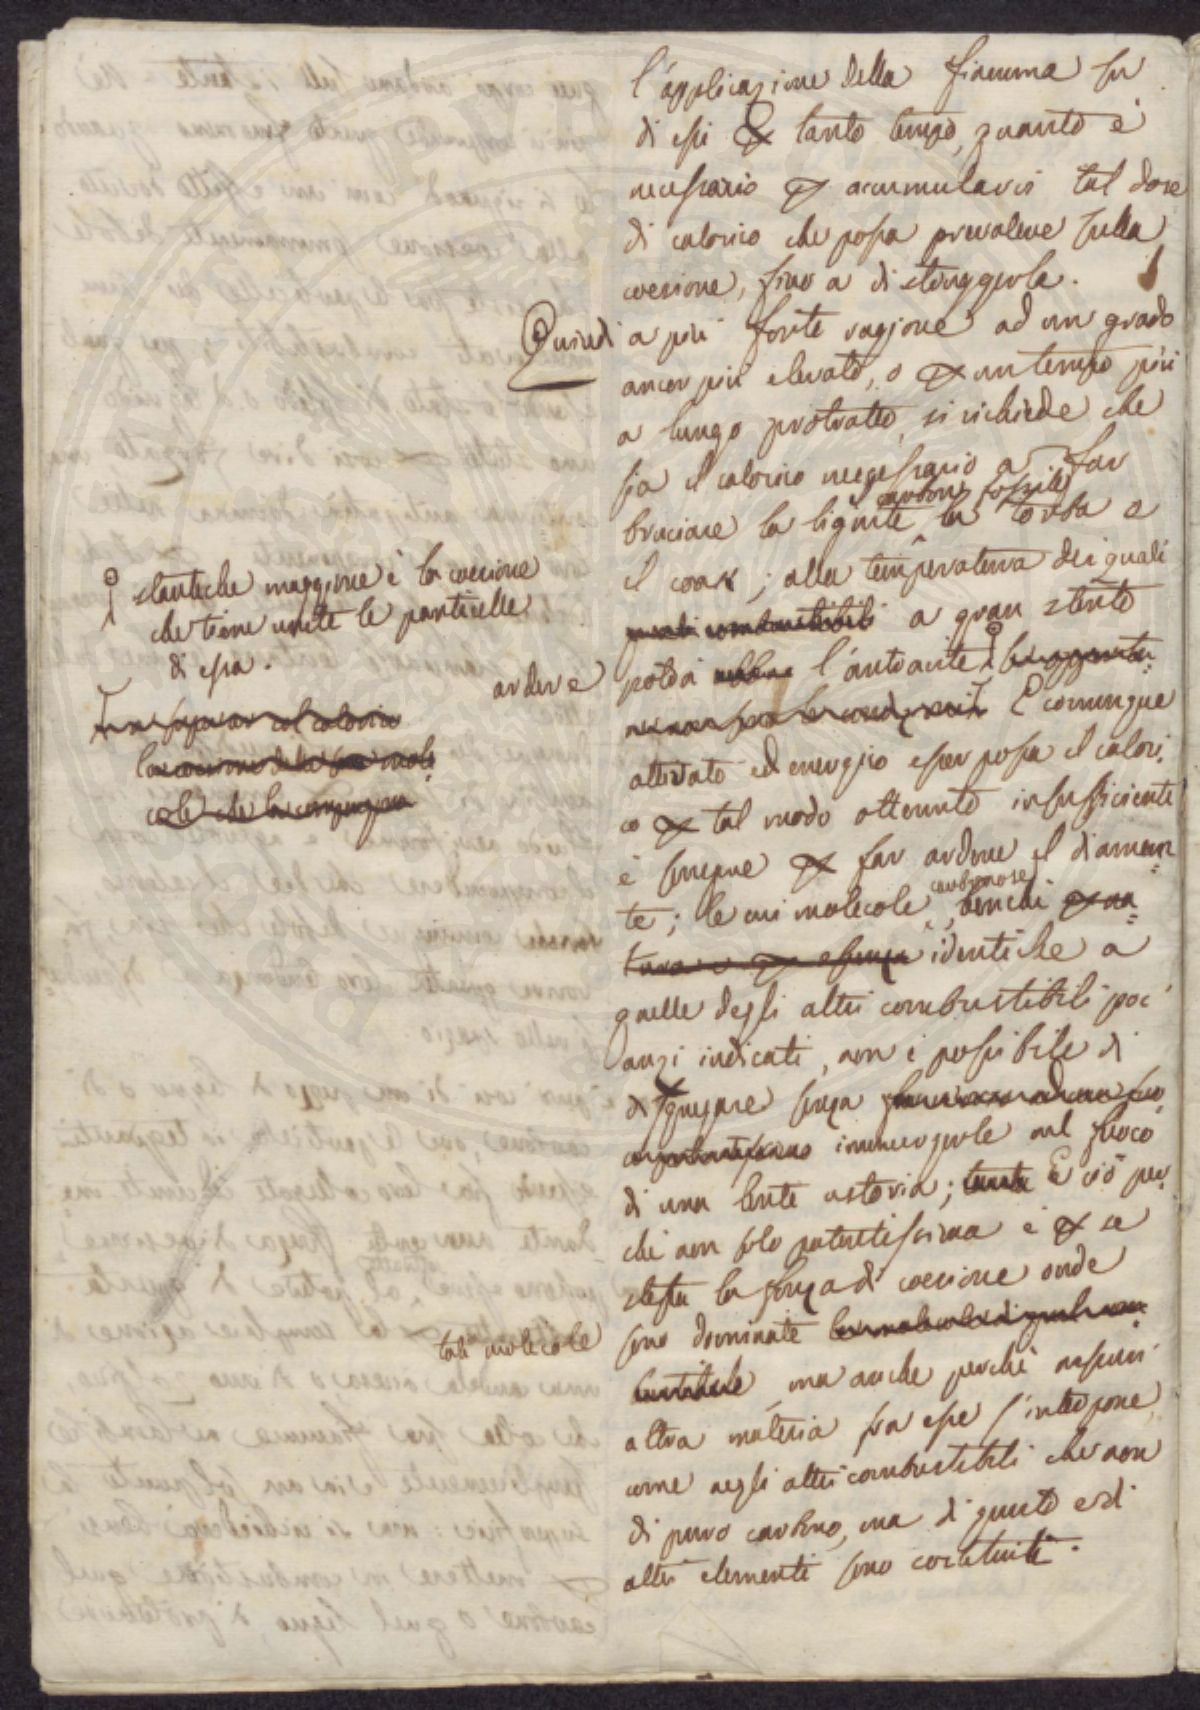 l'applicazione della fiamma su
di essi per tanto tempo, quanto è
necessario per accumularvi tal dose
di calorico che possa prevalere sulla
coesione, fino a distruggerla.
Quindi a più forte ragione ad un grado
ancor più elevato, o per un tempo più
a lungo protratto, si richiede che
sia il calorico necessario a far
carbone fossile
bruciare la lignite, la torba e
il coak; alla temperatura dei quali
combustibili a gran stento
potrà ardere l'antracite
E comunque
attivato ed energico esser possa il calori-
co per tal modo ottenuto insufficiente
è sempre per far ardere il diaman-
carbonose
te; le cui molecole, benchè per na-
tura e per essenza identiche a
quelle degli altri combustibili poc'
anzi indicati, non è possibile di
disgregare senza
immergerle nel fuoco
di una lente ustoria; E ciò per-
chè non solo potentissima è per se
stessa la forza di coesione onde
sono dominate tali molecole
ma anche perchè nessun
altra materia fra esse s'interpone,
come negli altri combustibili che non
di puro carbono, ma di questo e di
altri elementi sono costituiti.
stantechè maggiore è la coesione
che tiene unite le particelle
di essa.
col calorico
la coesione delle sue mole-
cole che la compongono